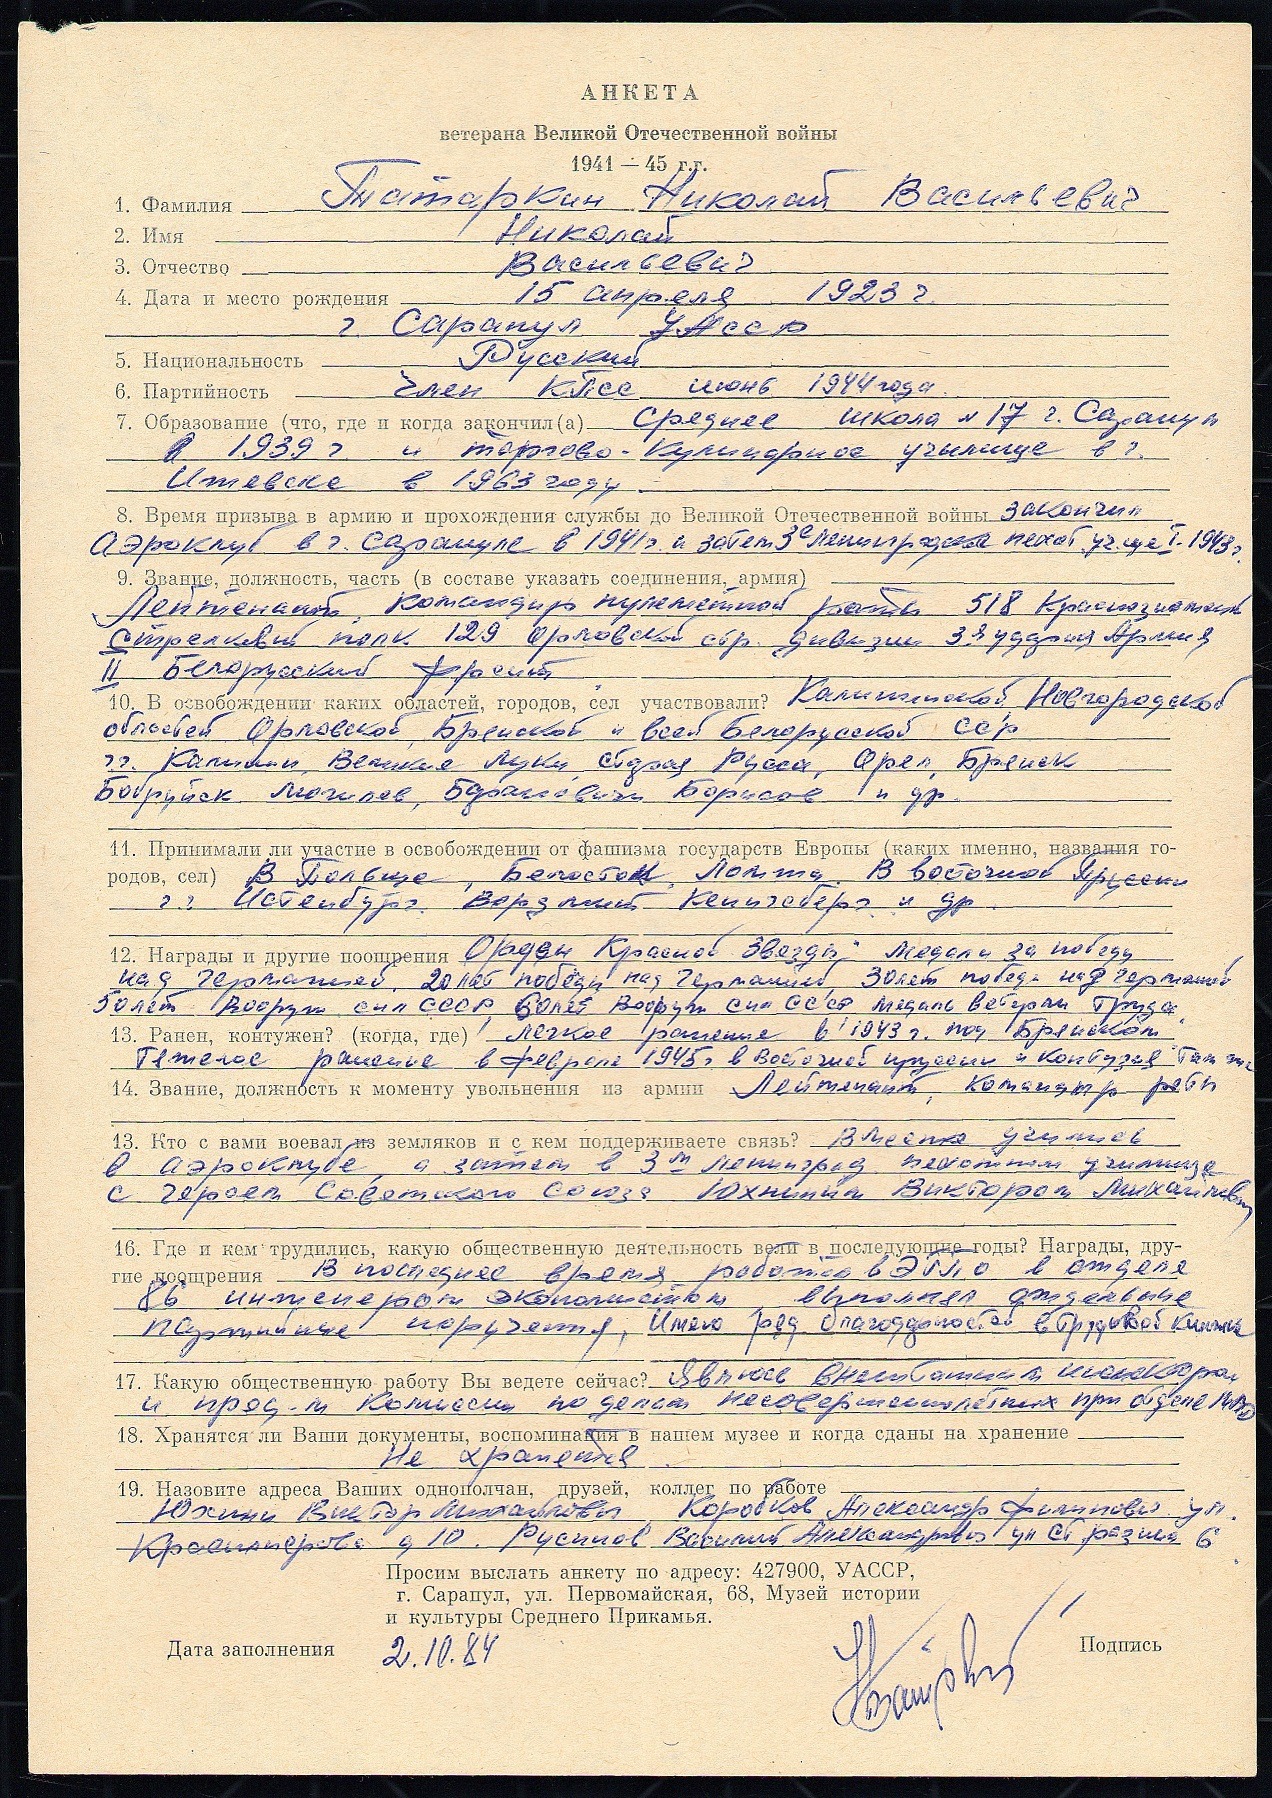 АНКЕТА
ветерана Великой Отечественной войны
1941 — 45 г.г.
1. Фамилия Татаркин Николай Васильевич
2. Имя Николай
3. Отчество Васильевич
4. Дата и место рождения 15 апреля 1923 г.
г. Сарапул УАССР
5. Национальность Русский
6. Партийность Член КПСС июнь 1944 года
7. Образование (что, где и когда закончил(а) Среднее школа № 17 г. Сарапул
в 1939 г и торгово-кулинарное училище в г.
Ижевске в 1963 году
8. Время призыва в армию и прохождения службы до Великой Отечественной войны Закончил
Аэроклуб в г. Сарапуле в 1941 г. и затем 3е Ленинградское пехот. уч-ще I-1943 г.
9. Звание, должность, часть (в составе указать соединения, армия)
Лейтенант, Командир пулеметной роты 518 Краснознамен
стрелковый полк 129 Орловской стр. дивизии 3я ударная Армия
II Белорусский фронт
10. В освобождении каких областей, городов, сел участвовали? Калининской, Новгородской
областей Орловской, Брянской и всей Белорусской ССР
гг. Калинин, Великие Луки, Старая Русса, Орел, Брянск
Бобруйск Могилев, Барановичи Борисов и др.
11. Принимали ли участие в освобождении от фашизма государств Европы (каких именно, названия го-
родов, сел) В Польше, Белосток, Ломжа. В восточной Пруссии
г.г Истенбург. Кенигсберг и др.
12. Награды и другие поощрения Орден Красной Звезды, медали за победу
над Германией. 20 лет победы над Германией 30 лет победы над Германией
50 лет Вооруж сил СССР, 60 лет Вооруж сил СССР медаль Ветеран Труда
13. Ранен, контужен? (когда, где) легкое ранение в 1943 г. под Брянском
Тяжелое ранение в феврале 1945 г в Восточной пруссии и контузия Там же
14. Звание, должность к моменту увольнения из армии Лейтенант, командир роты
13. Кто с вами воевал из земляков и с кем поддерживаете связь? Вместе учились
в аэроклубе, а затем в 3м Ленинград пехотном училище
с героем Советского Союза Юхниным Виктором Михайловичем
16. Где и кем трудились, какую общественную деятельность вели в последующие годы? Награды, дру-
гие поощрения В последнее время работаю в ЭГПО в отделе
86 инженером экономистом выполнял отдельные
партийные поручения, Имею ряд благодарностей в трудовой книжке
17. Какую общественную работу Вы ведете сейчас? Являюсь внештатным
и пред-м Комиссии по делам несовершеннолетних при отделе МВД
18. Хранятся ли Ваши документы, воспоминания в нашем музее и когда сданы на хранение
Не хранятся
19. Назовите адреса Ваших однополчан, друзей, коллег по работе
Юхнин Виктор Михайлович, Коробков Александр Филипович ул.
д 10. Русинов Василий Александрович ул Ст. разина 6
Просим выслать анкету по адресу: 427900, УАССР,
г. Сарапул, ул. Первомайская, 68, Музей истории
и культуры Среднего Прикамья.
Дата заполнения 2.10.84 Подпись